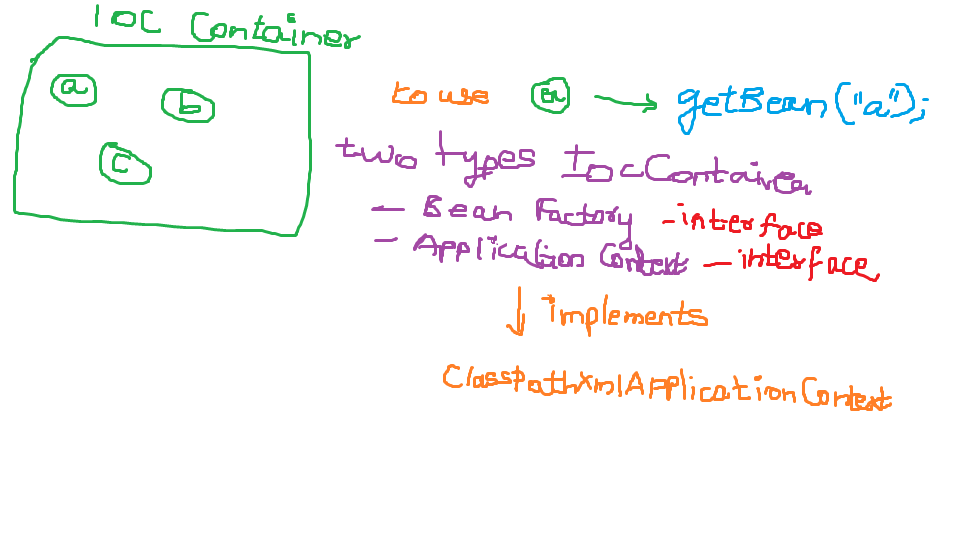 IOC Container
a
b
c
to use a getBean("a");
two types IocContainer
- Bean Factory - interface
- Application Context - interface
implements
ClasspathXmlApplicationContext